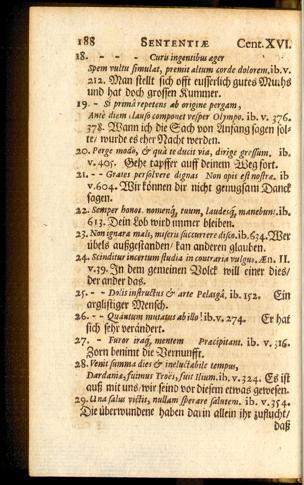 188 SENTENTIÆ Cent. XVI.
18. - - - Curis ingentibus æger
Spem vultu simulat, premit altum corde dolorem. ib. v.
212. Man stellt sich offt eusserlich gutes Muths
und hat doch grossen Kummer.
19. - Si primâ repetens ab origine pergam,
Antè diem clauso componet vesper Olympo. ib. v. 376.
378. Wann ich die Sach von Anfang sagen sol-
te/ wurde es eher Nacht werden.
20. Perge modò, & quà te ducit via, dirige gressum. ib.
v. 405. Gehe tapffer auff deinem Weg fort.
21. - - Grates persolvere dignas Non opis est nostræ. ib
v. 604. Wir können dir nicht genugsam Danck
sagen.
22. Semper honos. nomenq́, tuum, laudesq́, manebunt. ib.
613. Dein Lob wird immer bleiben.
23. Non ignara mali, miseris succurrere disco. ib. 634. Wer
übels außgestanden/ kan anderen glauben.
24. Scinditur incertum studia in contraria vulgus. Æn. II.
v. 39. In dem gemeinen Volck will einer dies/
der ander das.
25. - - Dolis instructus & arte Pelasgâ. ib. 152. Ein
arglistiger Mensch.
26. - - Quantum mutatus ab illo! ib. v. 274. Er hat
sich sehr verändert.
27. - Furor iraq́, mentem Præcipitant. ib. v. 316.
Zorn benimt die Vernunfft.
28. Venit summa dies & ineluctabile tempus,
Dardaniæ, fuimus Troës, fuit Ilium. ib. v. 324. Es ist
auß mit uns/ wir seind vor diesem etwas gewesen.
29. Una salus victis, nullam sperare salutem. ib. v. 354.
Die überwundene haben darin allein ihr zuflucht/
daß